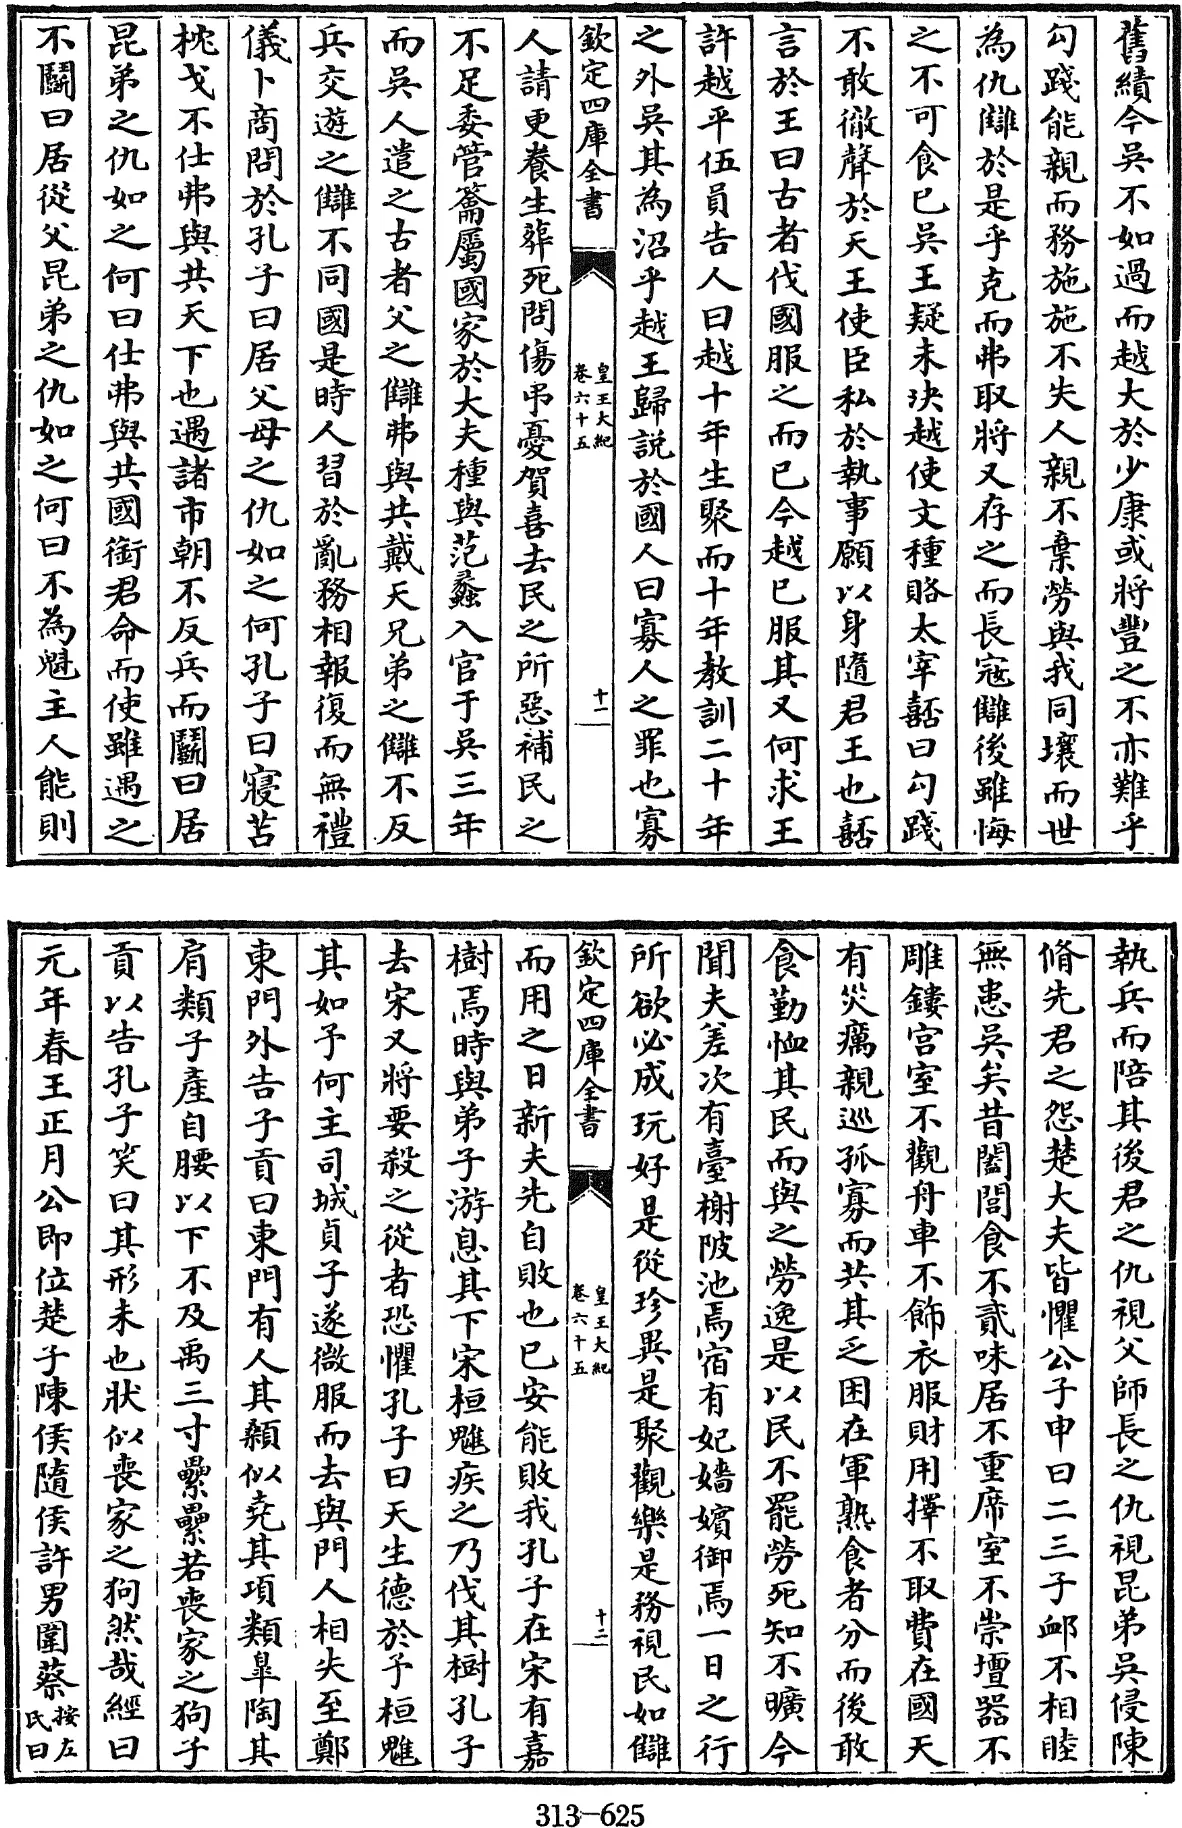 舊績今吳不如過而越大於少康或將豐之不亦難乎
勾踐能親而務施施不失人親不棄勞與我同壤而世
為仇讎於是乎克而弗取將又存之而長寇讎後雖悔
之不可食已吳王疑未決越使文種賂太宰嚭曰勾踐
不敢徹聲於天王使臣私於執事願以身隨君王也嚭
言於王曰古者伐國服之而已今越已服其又何求王
許越平伍員告人曰越十年生聚而十年教訓二十年
之外吳其為沼乎越王歸說於國人曰寡人之罪也寡
欽定四庫全書
皇王大紀
卷六十五
十一
人請更養生葬死問傷弔憂賀喜去民之所惡補民之
不足委管籥屬國家於大夫種與范蠡入官于吳三年
而吳人遣之古者父之讎弗與共戴天兄弟之讎不反
兵交遊之讎不同國是時人習於亂務相報復而無禮
儀卜商問於孔子曰居父母之仇如之何孔子曰寢苫
枕戈不仕弗與共天下也遇諸市朝不反兵而鬬曰居
昆弟之仇如之何曰仕弗與共國銜君命而使雖遇之
不鬬曰居從父昆弟之仇如之何曰不為魁主人能則
執兵而陪其後君之仇視父師長之仇視昆弟吳侵陳
脩先君之怨楚大夫皆懼公子申曰二三子衈不相睦
無患吳矣昔闔閭食不貳味居不重席室不崇壇器不
雕鏤宮室不觀舟車不飾衣服財用擇不取費在國天
有災癘親巡孤寡而共其乏困在軍熟食者分而後敢
食勤恤其民而與之勞逸是以民不罷勞死知不曠今
聞夫差次有臺榭陂池焉宿有妃嬙嬪御焉一日之行
所欲必成玩好是從珍異是聚觀樂是務視民如讎
欽定四庫全書
皇王大紀
卷六十五
十二
而用之日新夫先自敗也已安能敗我孔子在宋有嘉
樹焉時與弟子游息其下宋桓魋疾之乃伐其樹孔子
去宋又將要殺之從者恐懼孔子曰天生德於予桓魋
其如予何主司城貞子遂微服而去與門人相失至鄭
東門外告子貢曰東門有人其顙似堯其項類臯陶其
肩類子產自腰以下不及禹三寸纍纍若喪家之狗子
貢以告孔子笑曰其形未也狀似喪家之狗然哉經曰
元年春王正月公即位楚子陳侯隨侯許男圍蔡按左
氏曰
313-625